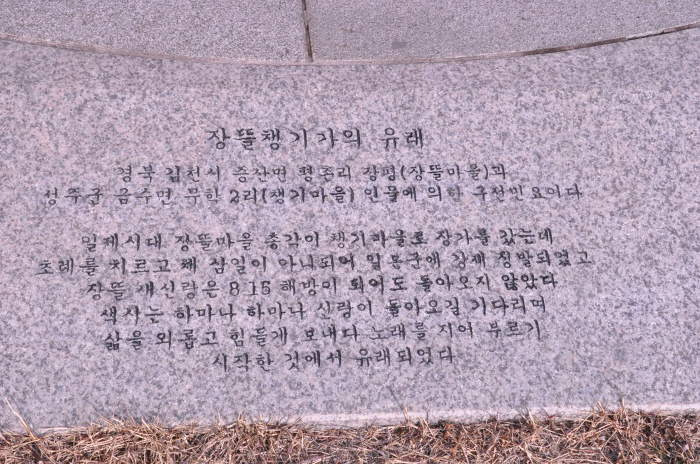 장뜰챙기가의 유래
경북 김천시 증산면 평촌리 장평(장뜰마을)과
성주군 금수면 무학 2리(챙기마을) 인물에 의한 구전민요이다
일제시대 장뜰마을 총각이 챙기마을로 장가를 갔는데
초례를 치르고 채 삼일이 아니되어 일본군에 강제 징발되었고
장뜰 새신랑은 8 15 해방이 되어도 돌아오지 않았다
색시는 하마나 하마나 신랑이 돌아오길 기다리며
삶을 외롭고 힘들게 보내다 노래를 지어 부르기
시작한 것에서 유래되었다